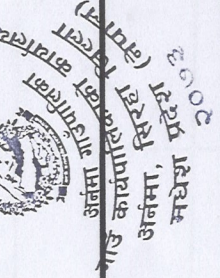 अर्नमा गाउँपालिका
गाउँ कार्यपालिकाको कार्यालय
अर्नमा, सिरहा
मधेश प्रदेश
२०७३